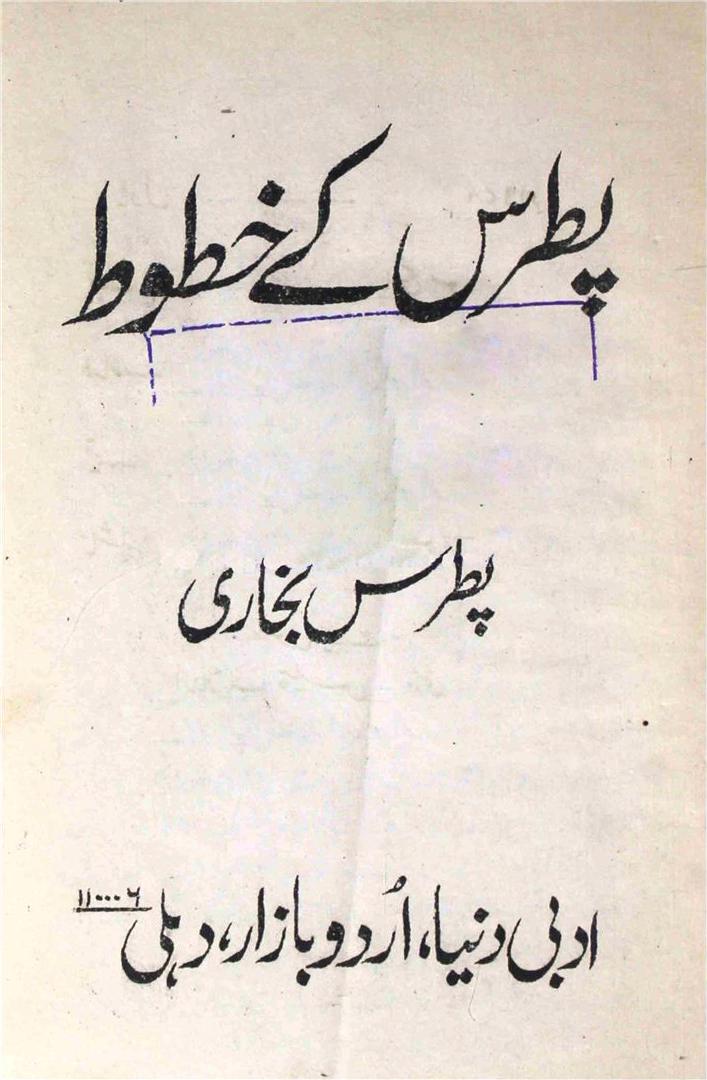 پطرس کے خطوط
پطرس بخاری
ادبی دنیا، اُردو بازار، دہلی ۱۱۰۰۰۶